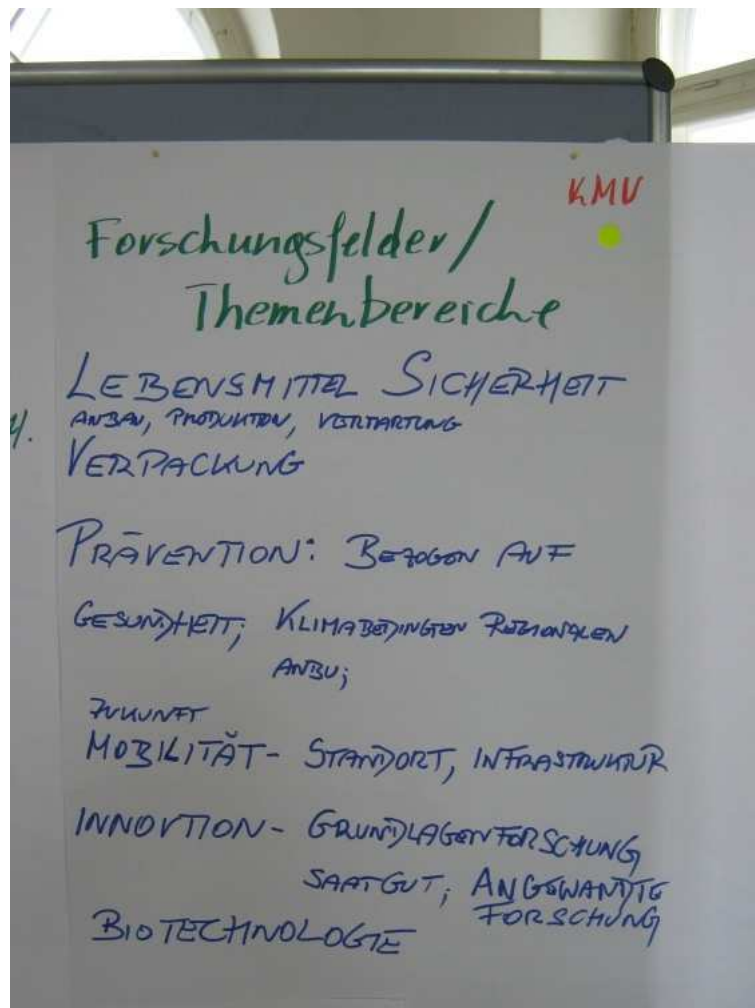 KMU
Forschungsfelder/
Themenbereiche
LEBENSMITTEL SICHERHEIT
ANBAU, PRODUKTION, VERMARKTUNG
VERPACKUNG
PRÄVENTION: BEZOGEN AUF
GESUNDHEIT; KLIMABEDINGTEN REGIONALEN
ANBU;
ZUKUNFT
MOBILITÄT - STANDORT, INFRASTRUKTUR
INNOVTION - GRUNDLAGENFORSCHUNG
SAATGUT; ANGEWANDTE
FORSCHUNG
BIOTECHNOLOGIE